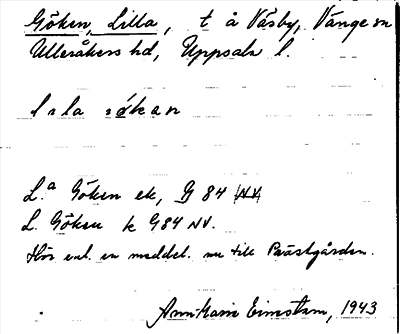 Göken, Lilla, t å Väsby, Vänge sn
Ulleråkers hd, Uppsala l.
lila jøkan
L.a Göken ek, G 84 NV
L. Göken k G84 NV.
Hör enl. en meddel. nu till Prästgården.
Ann-Marie Eimstam, 1943